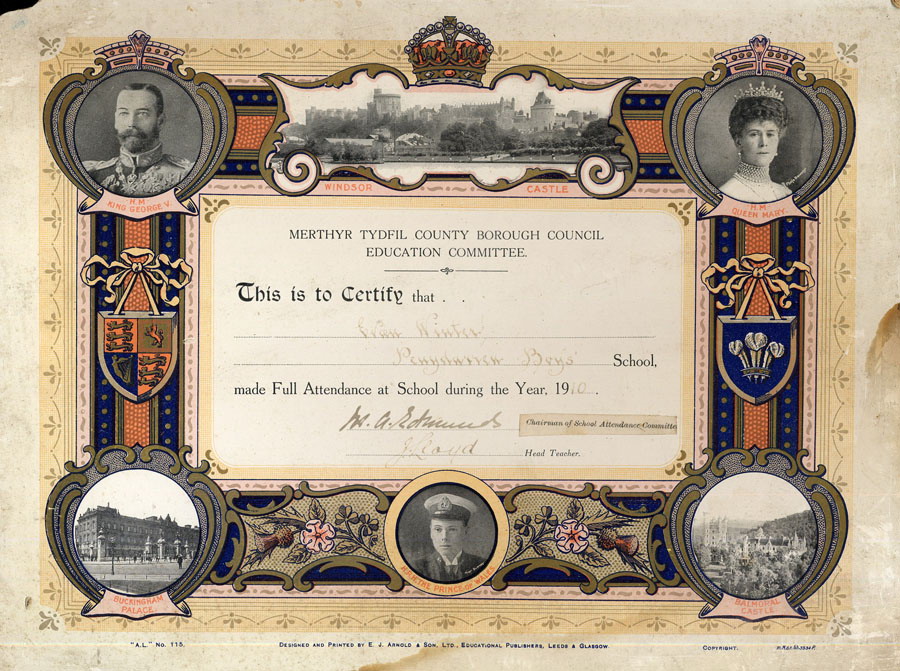 H.M. KING GEORGE V.
WINDSOR CASTLE
H.M. QUEEN MARY.
MERTHYR TYDFIL COUNTY BOROUGH COUNCIL
EDUCATION COMMITTEE.
This is to Certify that . .
Evan Winter
Penydarren Boys School,
made Full Attendance at School during the Year, 1910.
W. A. Edmunds Chairman of School Attendance Committee
J Lloyd Head Teacher.
BUCKINGHAM PALACE.
H.R.H. THE PRINCE OF WALES
BALMORAL CASTLE
"A.L." No. 113.
DESIGNED AND PRINTED BY E. J. ARNOLD & SON, LTD., EDUCATIONAL PUBLISHERS, LEEDS & GLASGOW.
COPYRIGHT.